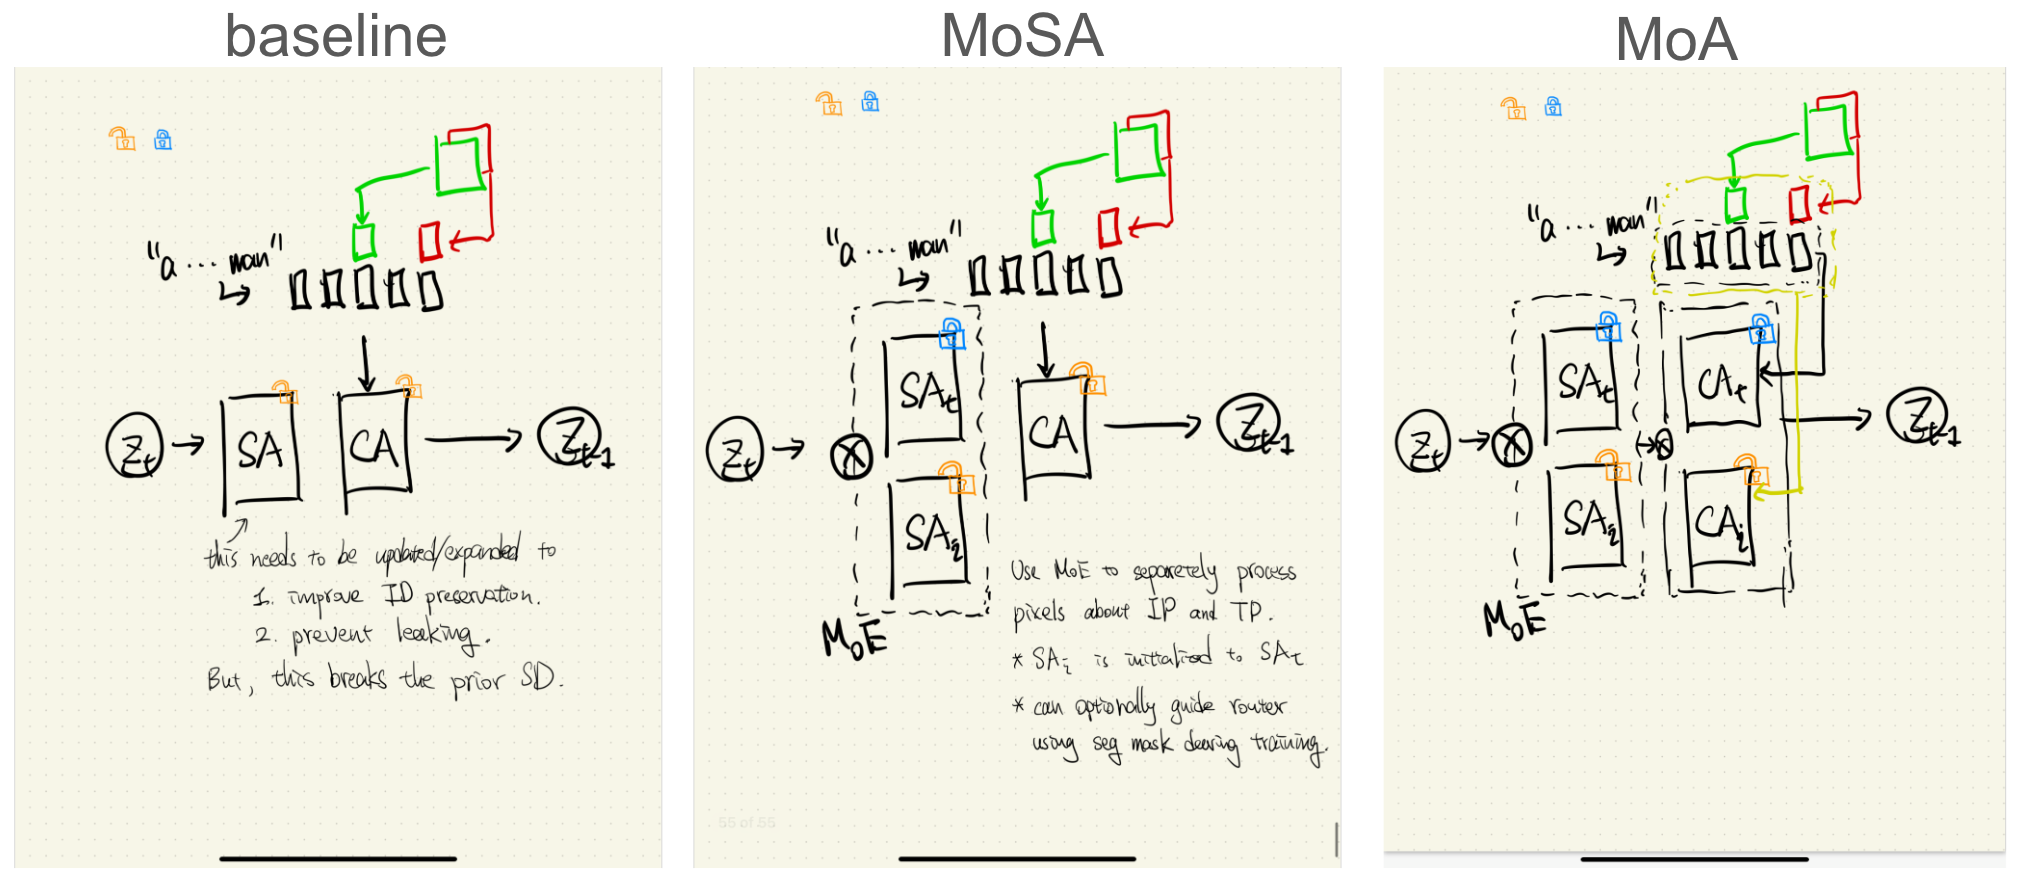 baseline
"a ... man"
Zt
SA
CA
Zt-1
this needs to be updated/expanded to
1. improve ID preservation.
2. prevent leaking.
But, this breaks the prior SD.
MoSA
"a ... man"
SAt
Zt
CA
Zt-1
SAi
MoE
Use MoE to separetely process
pixels about IP and TP.
* SAi is initialized to SAt
* can optionally guide router
using seg mask duering training.
55 of 55
MoA
"a ... man"
SAt
CAt
Zt
Zt-1
SAi
CAi
MoE